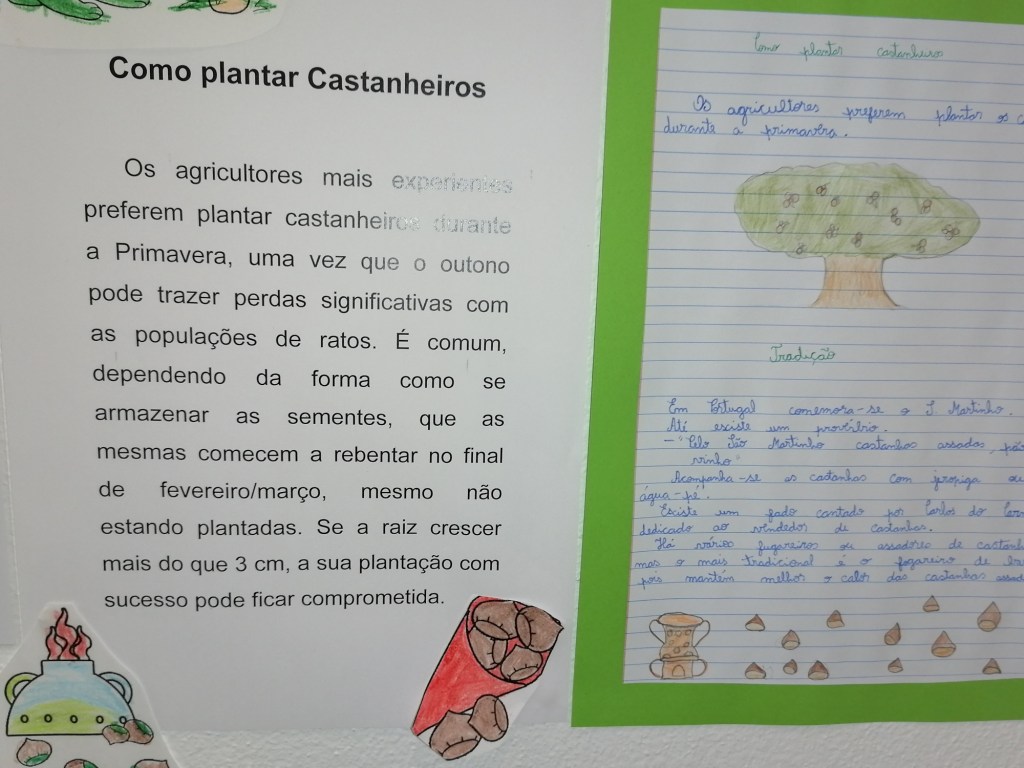 Como plantar Castanheiros
Os agricultores mais experientes
preferem plantar castanheiros durante
a Primavera, uma vez que o outono
pode trazer perdas significativas com
as populações de ratos. É comum,
dependendo da forma como se
armazenar as sementes, que as
mesmas comecem a rebentar no final
de fevereiro/março, mesmo não
estando plantadas. Se a raiz crescer
mais do que 3 cm, a sua plantação com
sucesso pode ficar comprometida.
Como plantar castanheiros
Os agricultores preferem plantar os
durante a primavera.
Tradução
Em Portugal comemora-se o S. Martinho.
Até existe um provérbio.
-"Pelo São Martinho castanhas assadas, pão
vinho"
Acompanha-se as castanhas com jeropiga ou
água-pé.
Existe um fado cantado por Carlos do
dedicado ao vendedor de castanhas.
Há vários fugareiros ou assadores de
mas o mais tradicional é o fogareiro de
pois mantém melhor o calor das castanhas